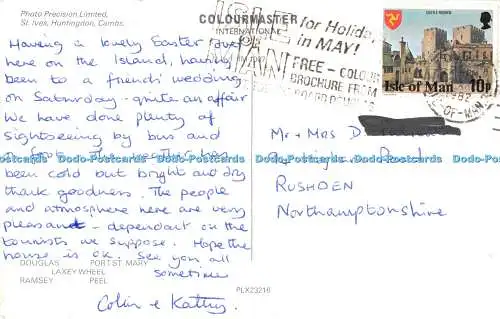 Photo Precision Limited,
St. Ives, Huntingdon, Cambs.
COLOURMASTER
INTERNATIONAL
Having a lovely Easter over
here on the Island, having
been to a friends wedding
on Saturday - quite an affair
We have done plenty of
sightseeing by bus and
foot. The weather has
been cold but bright and dry
thank goodness. The people
and atmosphere here are very
pleasant - dependant on the
tourists we suppose. Hope the
house is ok. See you all
sometime
Colin & Kathy.
DOUGLAS PORT ST MARY
LAXEY WHEEL
RAMSEY PEEL
PLX23216
ISLE
MAN
for Holidays
in MAY!
FREE - COLOUR
BROCHURE FROM
CASTLE RUSHEN
Isle of Man 10p
1982
OF MAN
Mr & Mrs D
Road
RUSHDEN
Northamptonshire
Dodo-Postcards.com